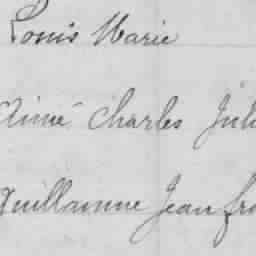 Louis Marie
Aimé Charles Jul
Guillaume Jean fra